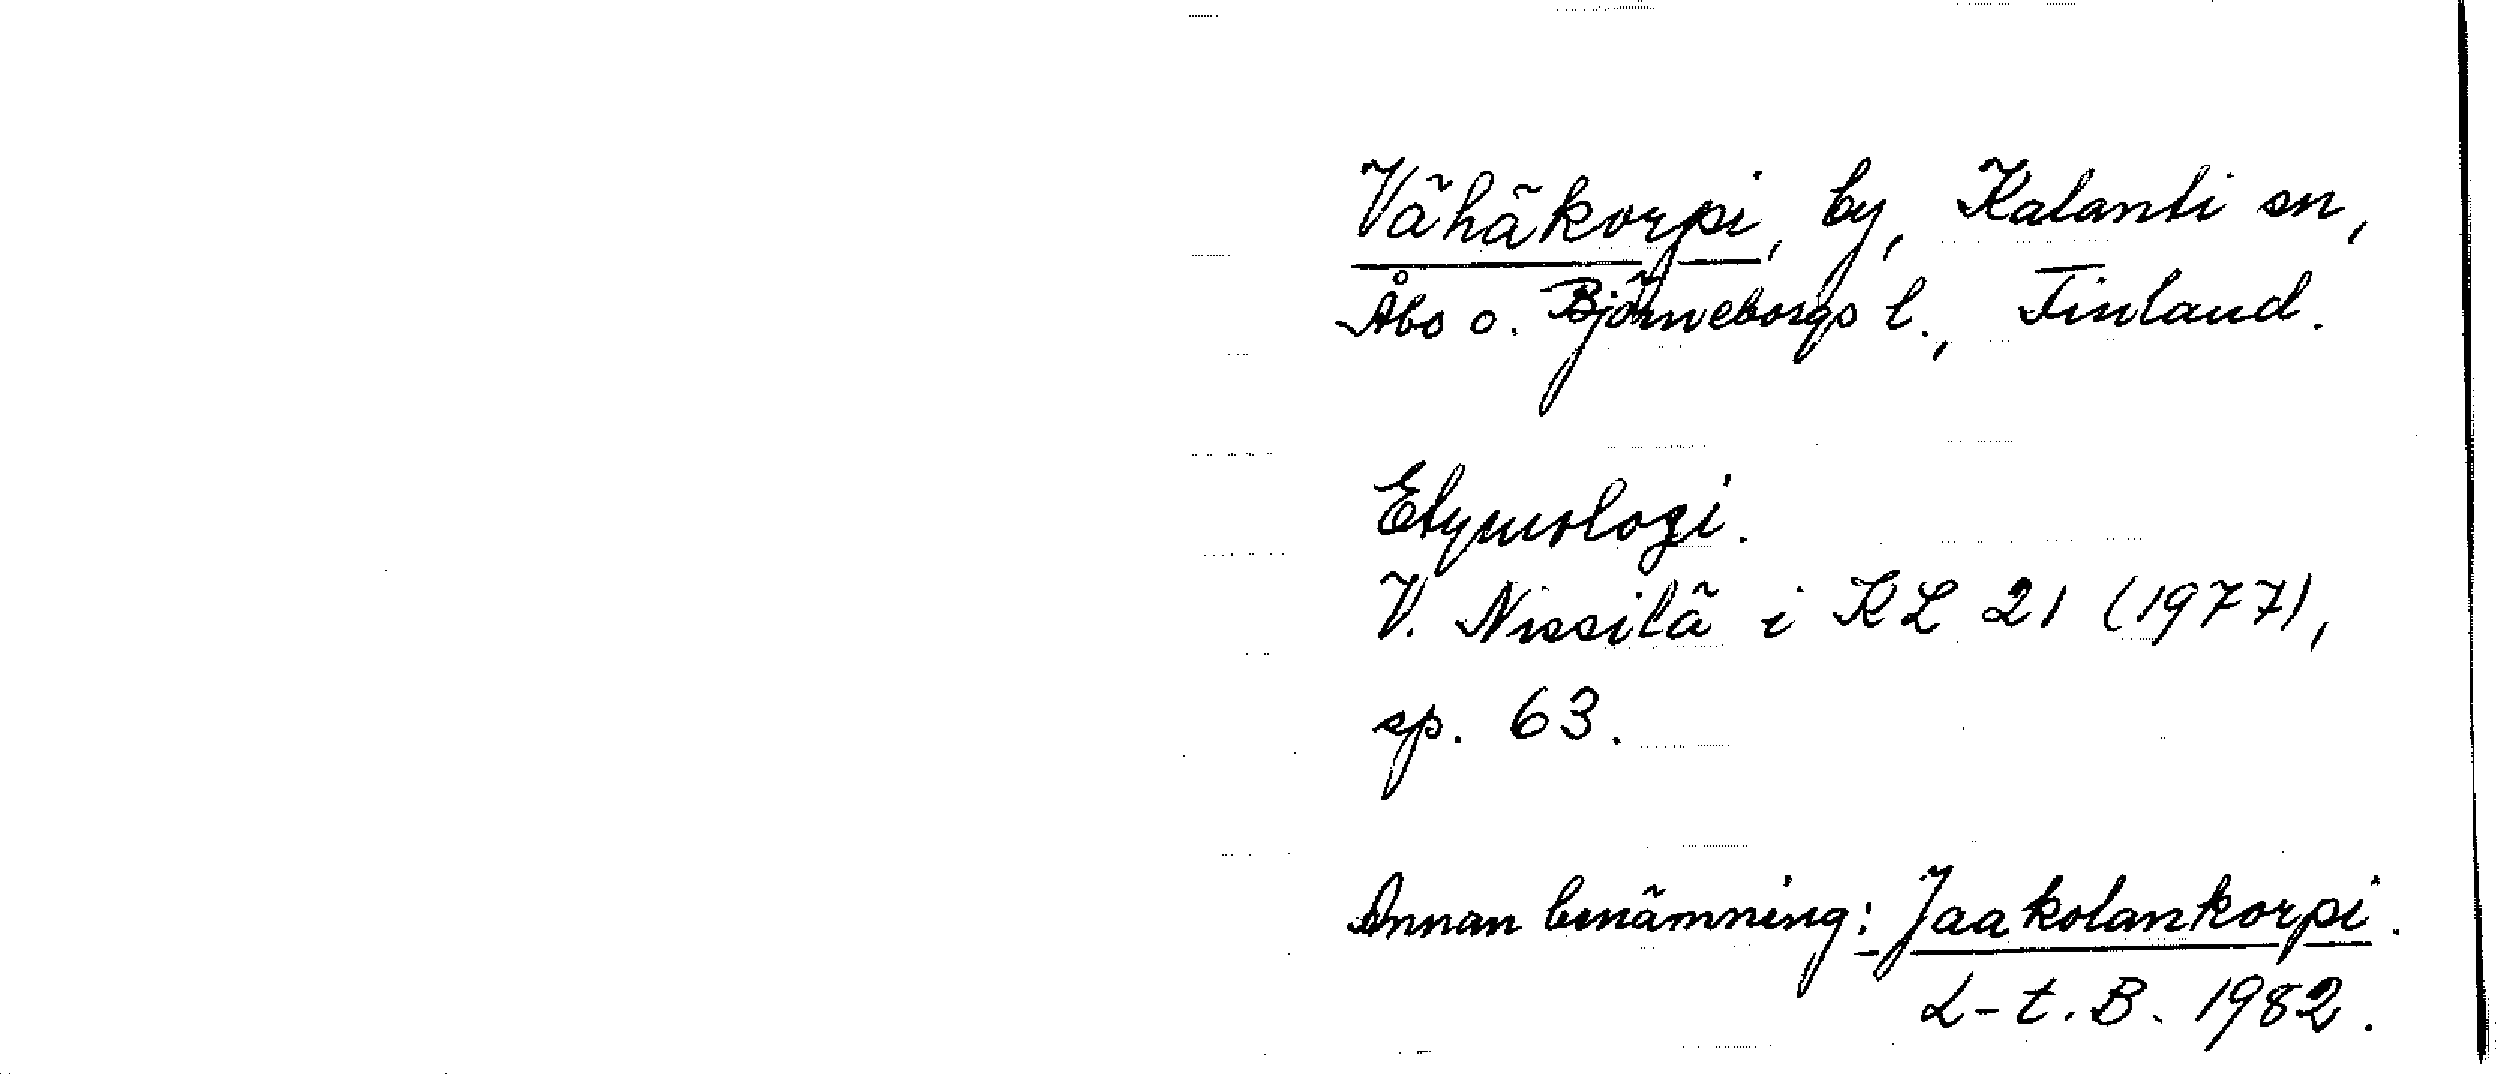 Vähäkorpi, by, Kalanti sn,
Åbo o. Björneborgs l., Finland.
Etymologi.
V. Nissilä i KL 21 (1977),
sp. 63.
Annan benämning: Jaakolankorpi.
L-t. B. 1982.